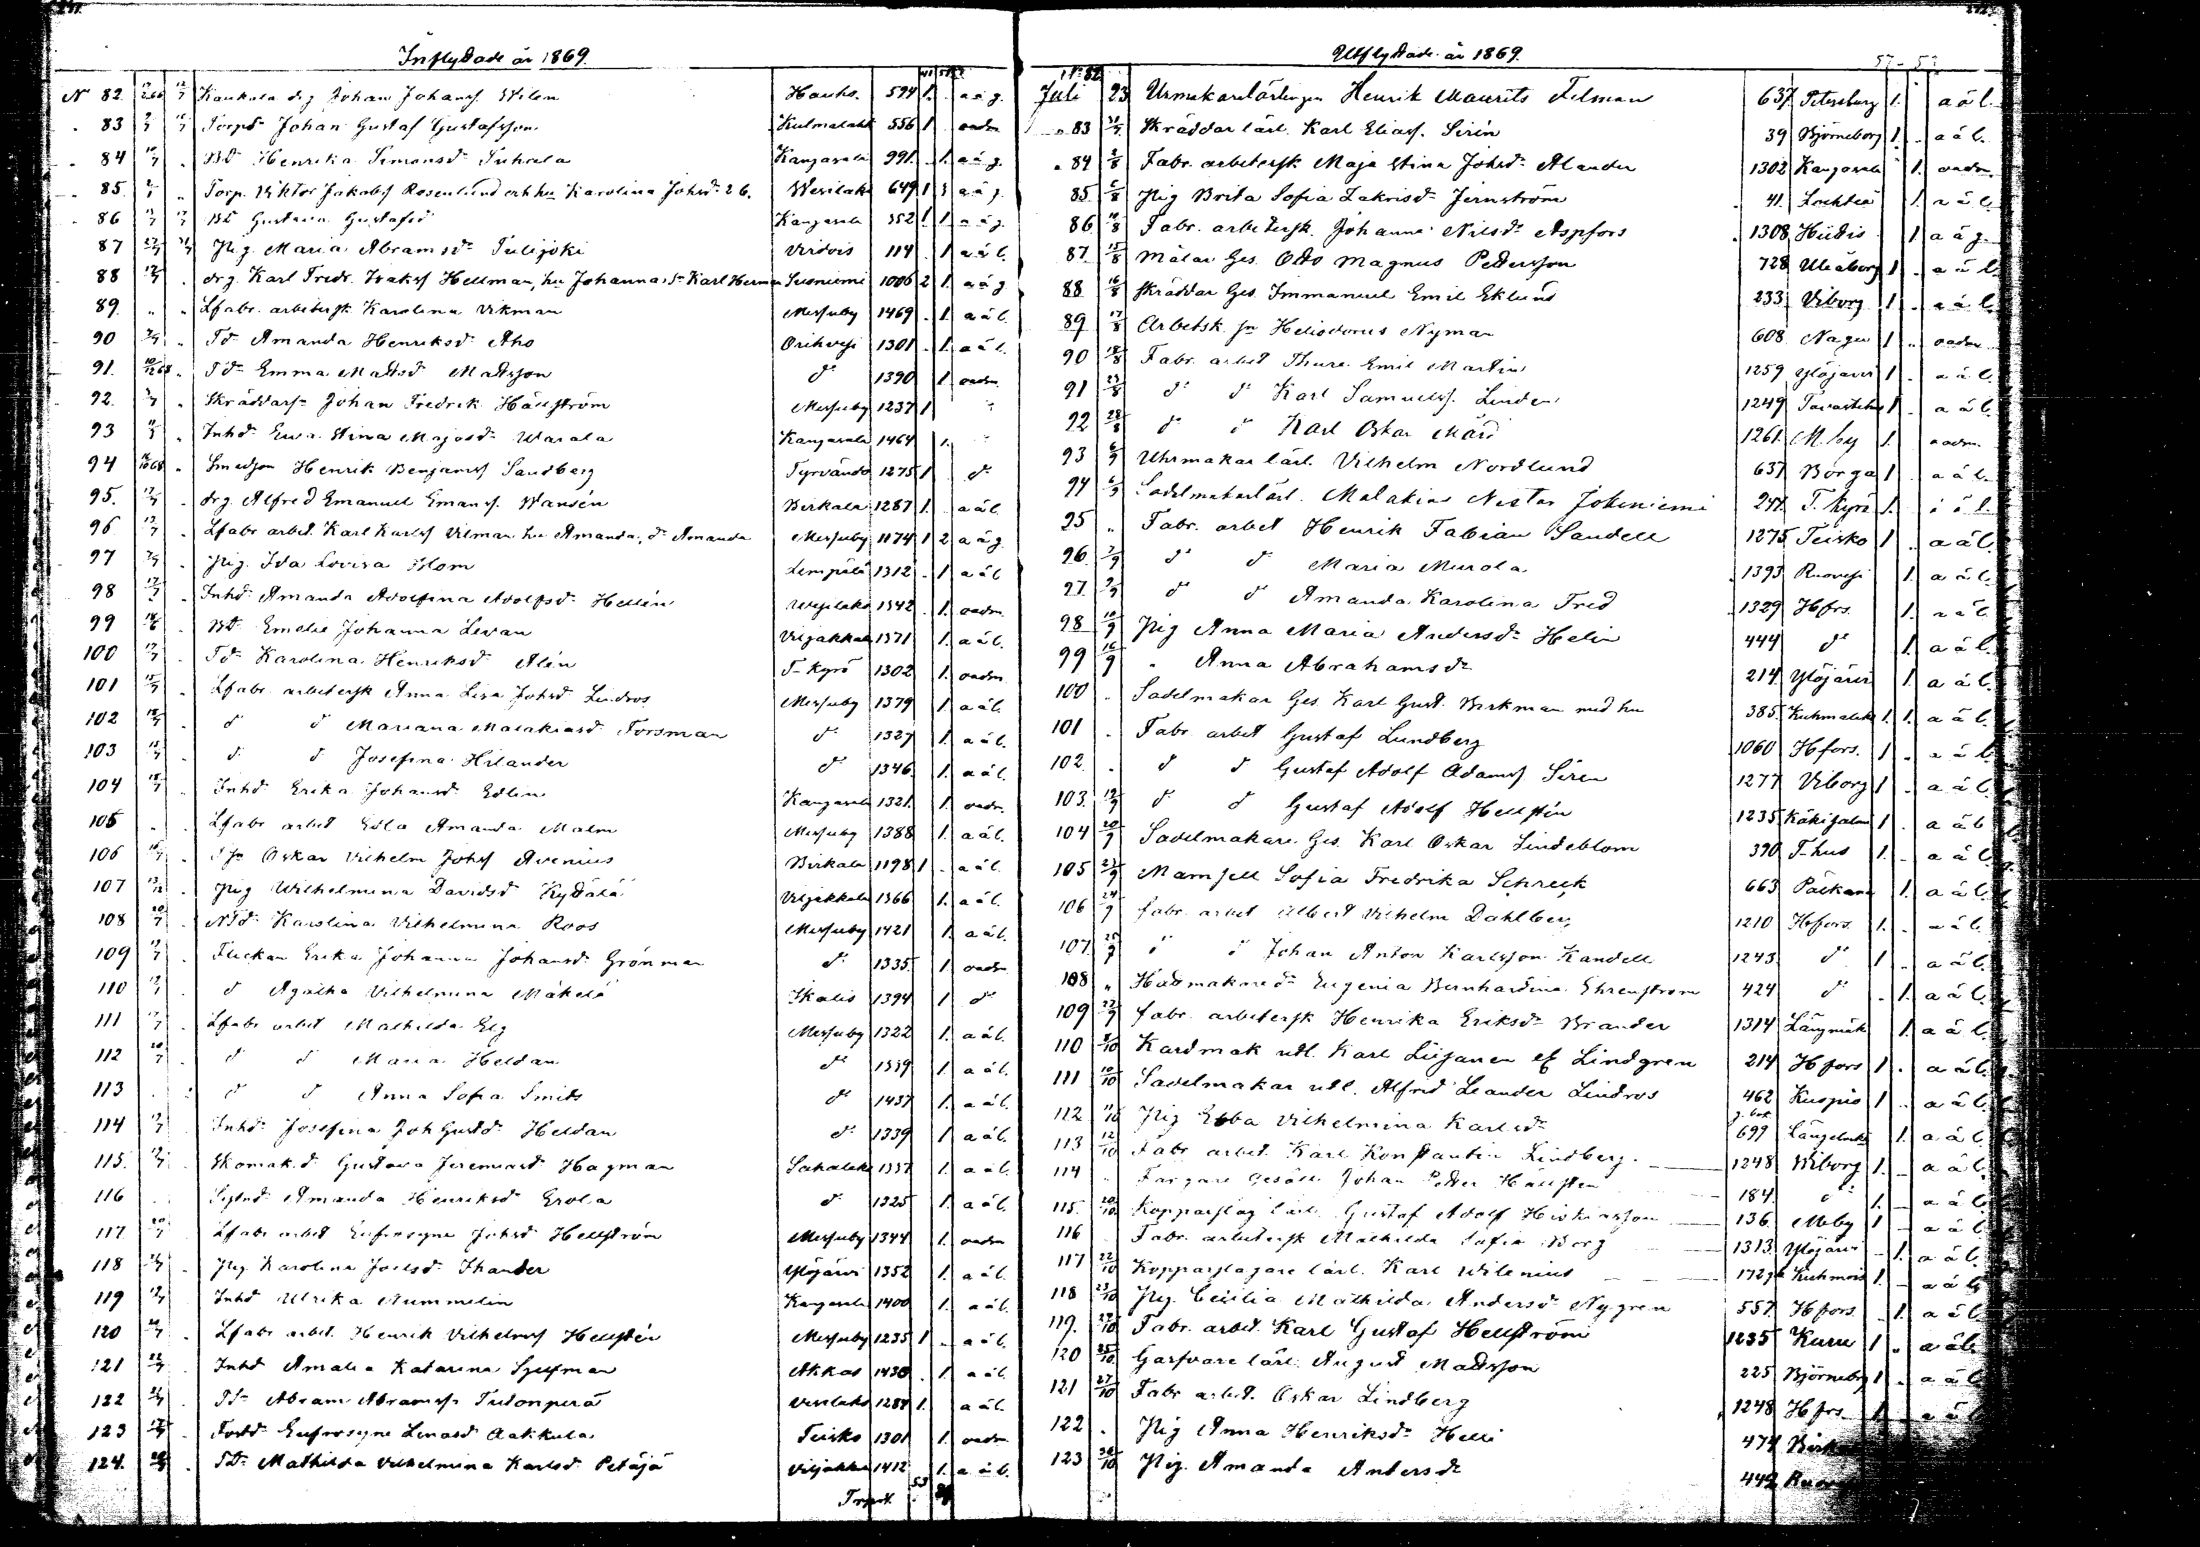 Inflyttade år 1869.
N 82 Kaukola drg Johan Johans. Wilen Hauho. 594 1. a ä g.
83 Torps. Johan Gustaf Gustafsson Kulmalaks 556 1 oadm
84 Henrika Simonsdr Kangasala 991. 1. a ä g.
85 Torp. Viktor Jakobss Rosenlund och hu Karolina Johsdr 2 b. Wesilaks 649 1 3 a ä g.
86 Gustava Gustafsd Kangasala 352 1 1 a ä g.
87 Pig. Maria Abramsdr Tulijoki Virdois 114 1 a ä l.
88 drg. Karl Fredr. Isakss Hellman, hu Johanna, Sn Karl Herman Suoniemi 1006 2 1. a ä g
89. Lfabr. arbetersk Karolina Vikman Messuby 1469 1. a ä l.
90 Td Amanda Henriksdr Aho Orihvesi 1301 1. a ä l.
91. Tdr Emma Mattsd Mattsson d:o 1390 1. oadm
92. Skräddars. Johan Fredrik Hällström Messuby 1237 1
93 Inhd Ewa Stina Majasdr Warala Kangasala 1464 1.
94 Smedson Henrik Benjamss Sandberg Tyrvändö 1275 1 d:o
95. drg. Alfred Emanuel Emanss. Wansén Birkala 1287 1. a ä l
96 Lfabr arbet. Karl Karlss Vilman hu Amanda, dr Amanda Messuby 1174 1 2 a ä g.
97 Pig. Ida Lovisa Blom Lempälä 1312 1 a ä l
98 Inhd Amanda Adolfina Adolfsdr Hellén Wesilaks 1342 1. oadm
99 Emelie Johanna Levan Viljakkala 1371 1. a ä l.
100 Td Karolina Henriksd Alén T-Kyrö 1302 1. oadm
101 Lfabr arbetersk Anna Lisa Johsd Lindros Messuby 1379 1. a ä l.
102 d d Mariana Malakiasd Forsman d:o 1327 1. a ä l.
103 d. d Josefina Hilander d:o 1346 1. a ä l.
104 Inhd Erika Johansd Edlin Kangasala 1321. 1. oadm
105 Lfabr arbet Edla Amanda Malm Messuby 1388 1. a ä l.
106 Oskar Vilhelm Johss Avenius Birkala 1198 1 a ä l.
107 Pig Wilhelmina Davidsd Kyttälä Viljakkala 1366 1. a ä l.
108 Karolina Vilhelmina Roos Messuby 1421 1. a ä l.
109 Flickan Erika Johanna Johansdr Grönman d:o 1335. 1 oadm
110 d Agatha Vilhelmina Mäkelä Ikalis 1394 1 d:o
111 Lfabr arbet Mathilda Elg Messuby 1322 1. a ä l.
112 d d Maria Heldan d:o 1339 1. a ä l.
113 d d Anna Sofia Smits d:o 1437 1. a ä l.
114 Inhd Josefina Joh Gustd Heldan d:o 1339 1. a ä l.
115. Skomak. d. Gustava Jeremiasd Hagman Sahalaks 1337 1. a ä l.
116 Amanda Henriksd Erola d. 1325 1. a ä l.
117 Lfabr arbet Eufrosyne Johsd Hellström Messuby 1344 1. oadm
118 Pig Karolina Joelsd Ihander Ylöjärvi 1352 1. a ä l.
119 Inhd Ulrika Nummelin Kangasala 1400 1. a ä l.
120 Lfabr arbet. Henrik Vilhelmss Hellstén Messuby 1235 1 a ä l.
121 Inhd Amalia Katarina Akkas 1430 1. a ä l.
122 Abram Abramss Vesilaks 1284 1. a ä l.
123 Eufrosyne Aakkula Teisko 1301 1. oadm
124. Td Mathilda Vilhelmina Karlsd Petäjä Viljakka 1412 1. a ä l.
Trsprt. 53
Utflyttade år 1869.
No 82
Juli 23 Urmakarelärlingen Henrik Maurits Felman 637 Petersburg 1. a ä l.
83 Skräddar lärl. Karl Eliass. Sirén 39 Björneborg 1 a ä l.
84 2/8 Fabr. arbetersk Maja Stina Johsdr Alander 1302 Kangasala 1. oadm.
85 Pig Brita Sofia Zakrisdr Jernström 41. Lochteå 1 a ä l.
86 Fabr. arbetersk. Johanna Nilsdr Aspfors 1308 Hiitis 1 a ä g.
87 Målar Ges. Otto Magnus Pettersson 728 Uleåborg 1 a ä l
88 16/8 Skräddar Ges. Immanuel Emil Eklund 233 Viborg 1 a ä l.
89 17/8 Arbetsk. Heliodorus Nyman 608 Nagu 1 oadm
90 18/8 Fabr. arbet Thure Emil Martin 1259 Ylöjärvi 1 a ä l.
91 23/8 d:o d:o Karl Samuelss. Linden 1249 Tavastehus 1 a ä l.
92 28/8 d d Karl Oskar Mård 1261. M.by 1. oadm.
93 6/9 Uhrmakar lärl. Vilhelm Nordlund 637 Borgå 1 a ä l.
94 Sadelmakarlärl. Malakias Nestor Jokiniemi 247. T. Kyrö 1.
95 Fabr. arbet Henrik Fabian Sandell 1275 Teisko 1 a ä l.
96 7/9 d d Maria Murola 1393 Ruovesi 1. a ä l.
97 d d Amanda Karolina Fred 1329 Hfors. 1. a ä l.
98 10/9 Pig Anna Maria Andersdr Helin 444 d:o 1. a ä l.
99 16/9 " Anna Abrahamsdr 214 Ylöjärvi 1 a ä l.
100 Sadelmakar Ges. Karl Gust. Birkman med hu 385. Kuhmalaks 1. 1. a ä l.
101 Fabr arbet Gustaf Lundberg 1060 Hfors. 1 a ä l.
102. d d Gustaf Adolf Adamss Sirén 1277 Viborg 1 a ä l.
103. d d Gustaf Adolf Hellstén 1235 Käkisalmi 1 a ä l
104 20/9 Sadelmakare Ges. Karl Oskar Lindeblom 390 T-hus 1. a ä l.
105 Mamsell Sofia Fredrika Schreck 663 Pälkäne 1. a ä l.
106 24/9 fabr. arbet Albert Vilhelm Dahlberg 1210 Hfors. 1. a ä l.
107. 25/9 d d Johan Anton Karlsson Kandell 1243 d:o 1 a ä l.
108 " Hattmakare dr Eugenia Bernhardina Ehrenström 424 d:o 1. a ä l.
109 fabr. arbetersk Henrika Eriksdr Brander 1314 Längmäk 1. a ä l.
110 Kardmak utl. Karl Lindgren 214 Hfors 1. a ä l.
111 10/10 Sadelmakar utl. Alfred Leander Lindros 462 Kuopio 1 a ä l.
112 Pig Ebba Vilhelmina Karlsdr 699 Längelmäki 1. a ä l.
113 12/10 Fabr arbet. Karl Konstantin Lindberg. 1248 Wiborg 1. a ä l.
114 Färgare Gesäll Johan Petter Hällsten 184 d:o 1. a ä l.
115. 20/10 Kopparslag lärl. Gustaf Adolf Hiskiasson 136 Mby 1 a ä l.
116 Fabr. arbetersk Mathilda Sofia Borg 1313 Ylöjärvi 1. a ä l.
117 22/10 Kopparslagare lärl. Karl Wilenius 172 Kuhmois 1. a ä l
118 23/10 Pig. Cecilia Mathilda Andersd Nygren 557 Hfors 1 a ä l
119. Fabr. arbet. Karl Gustaf Hellström 1235 Kuru 1 a ä l.
120 25/10 Garfvare lärl. August Mattsson 225 Björneborg 1 a ä l.
121 27/10 Fabr arbet. Oskar Lindberg 1248 Hfrs. 1 a ä l
122. Pig Anna Henriksdr Helli 474
123 Pig. Amanda Andersdr 442